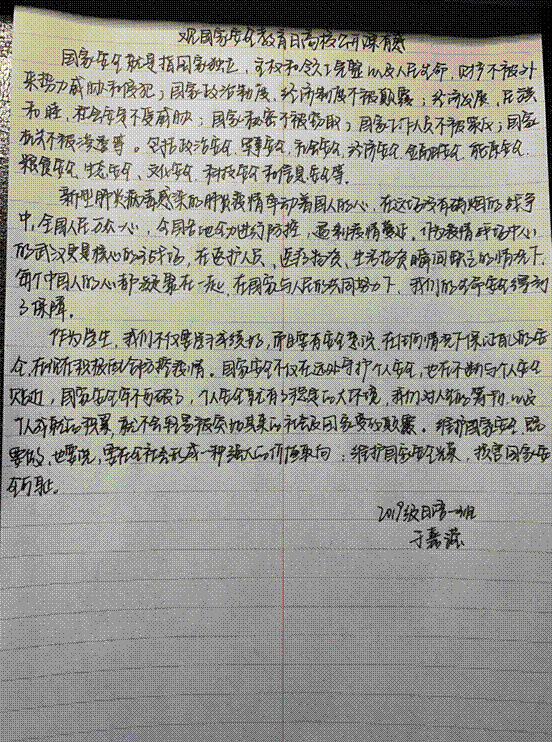 观国家安全教育日高校公开课有感
国家安全就是指国家独立，主权和领土完整以及人民生命，财产不被外
来势力威胁和侵犯；国家政治制度，经济制度不被颠覆；经济发展，民族
和睦，社会安定不受威胁；国家秘密不被窃取；国家工作人员不被策反；国家
机关不被渗透等。包括政治安全，军事安全，社会安全，经济安全，金融安全，能源安全，
粮食安全，生态安全，文化安全，科技安全和信息安全等。
新型肺炎病毒感染的肺炎疫情牵动着国人的心，在这场没有硝烟的战争
中，全国人民万众一心，全国各地全力进行防控，遏制疫情蔓延。作为疫情的中心
的武汉更是核心的主战场，在医护人员，医疗物资，生活物资瞬间缺乏的情况下，
每个中国人的心都凝聚在一起，在国家与人民的共同努力下，我们的生命安全得到
了保障。
作为学生，我们不仅要学习成绩好，而且要有安全意识，在任何情况下保证自己的安
全，在所在积极配合防控疫情。国家安全不仅在远处守护个人安全，也在不断与个人安全
贴近，国家安全牢不可破了，个人安全就有了稳定的大环境，我们对人生的筹划，以及
个人成就的积累，就不会轻易被突如其来的社会及国家变故颠覆。维护国家安全，既
要做，也要说，要在全社会形成一种强大的价值取向：维护国家安全光荣，损害国家安
全可耻。
2019级日语一班
于嘉滋